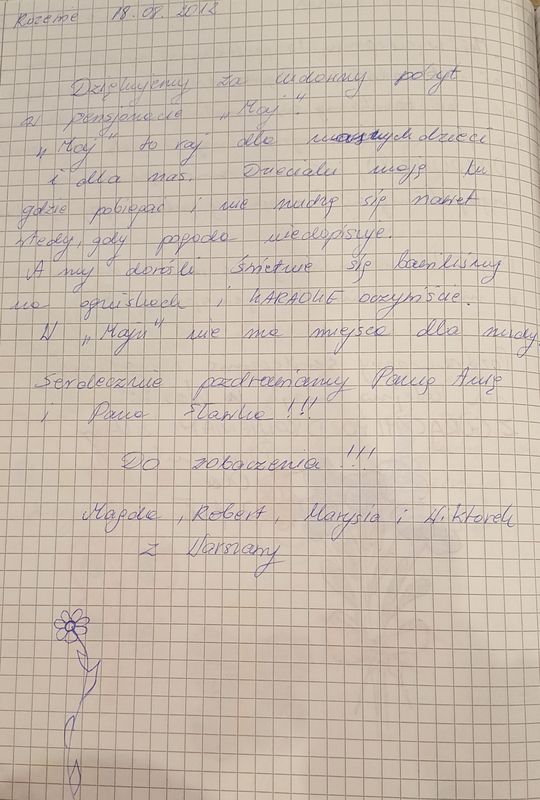 Rozewie 18.08.2012
Dziękujemy za cudowny pobyt
w pensjonacie „Maj".
„Maj" to raj dla naszych dzieci
i dla nas. Dzieciaki mają tu
gdzie pobiegać i nie nudzą się nawet
wtedy, gdy pogoda niedopisuje.
A my dorośli świetnie się bawiliśmy
na ogniskach i KARAOKE oczywiście.
W „Maju" nie ma miejsca dla nudy.
Serdecznie pozdrawiamy Panią Anię
i Pana Sławka !!!
Do zobaczenia !!!
Magda, Robert, Marysia i Wiktorek
z Warszawy